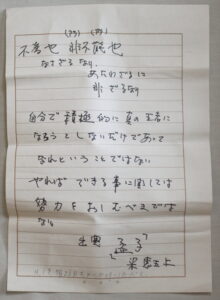 不為也 非不能也
なさざるなり
あたわざるに
非ざるなり
自分で積極的に真の王者に
なろうとしないだけであって
なれないということではない
やればできる事に関しては
努力をおしむべきでは
ない
出典 孟子
梁恵王上